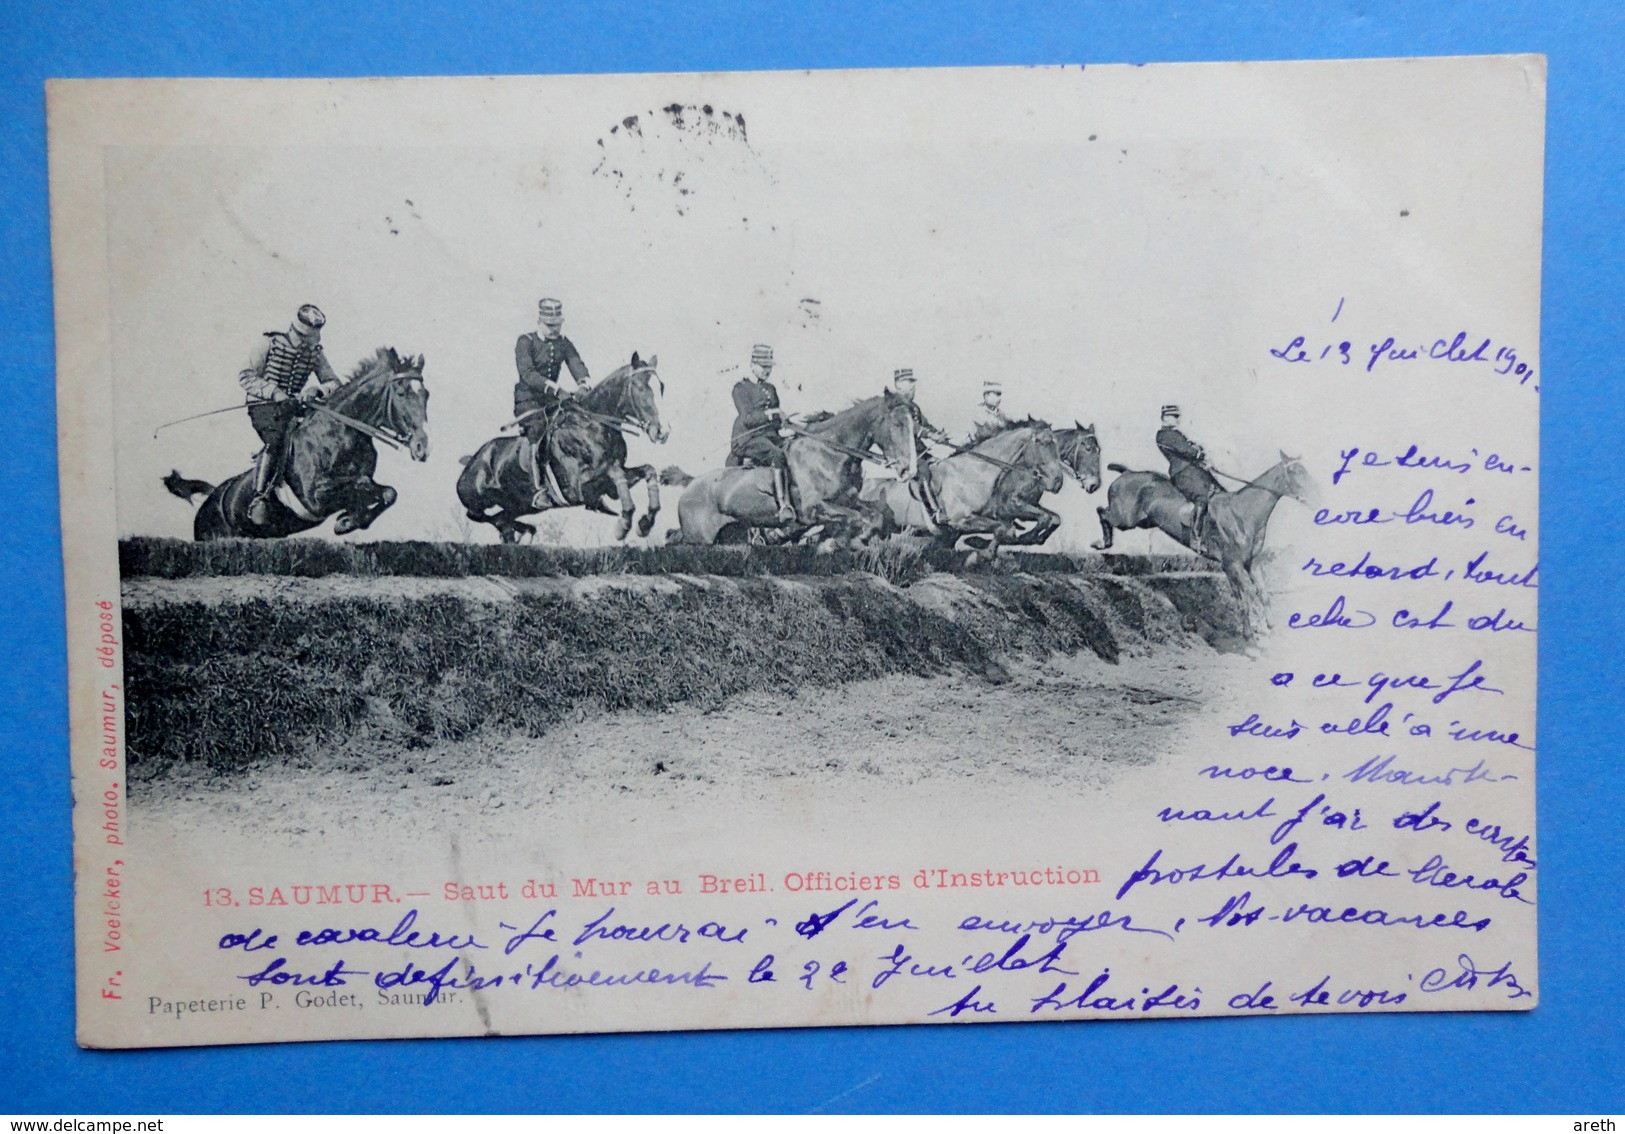 Le 13 Juillet 1901.
Je suis en-
core bien en
retard, tout
cela est du
a ce que je
suis allé à une
noce. Mainte-
nant j'ai des cartes
postales de l'Ecole
de cavalerie je pourrai t'en envoyer, Nos vacances
sont definitivement le 22 Juillet.
au plaisir de te voir
13. SAUMUR. — Saut du Mur au Breil. Officiers d'Instruction
Papeterie P. Godet, Saumur.
Fr. Voelcker, photo. Saumur, déposé
delcampe.net
areth